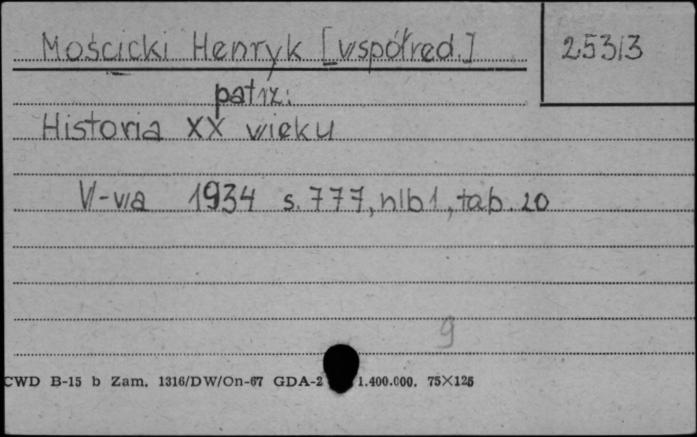 Mościcki Henryk [współred.]
25313
patrz:
Historia XX wieku
W-wa 1934 s. 777, nlb1, tab. 20
9
CWD B-15 b Zam. 1316/DW/On-67 GDA-2 1.400.000. 75×125